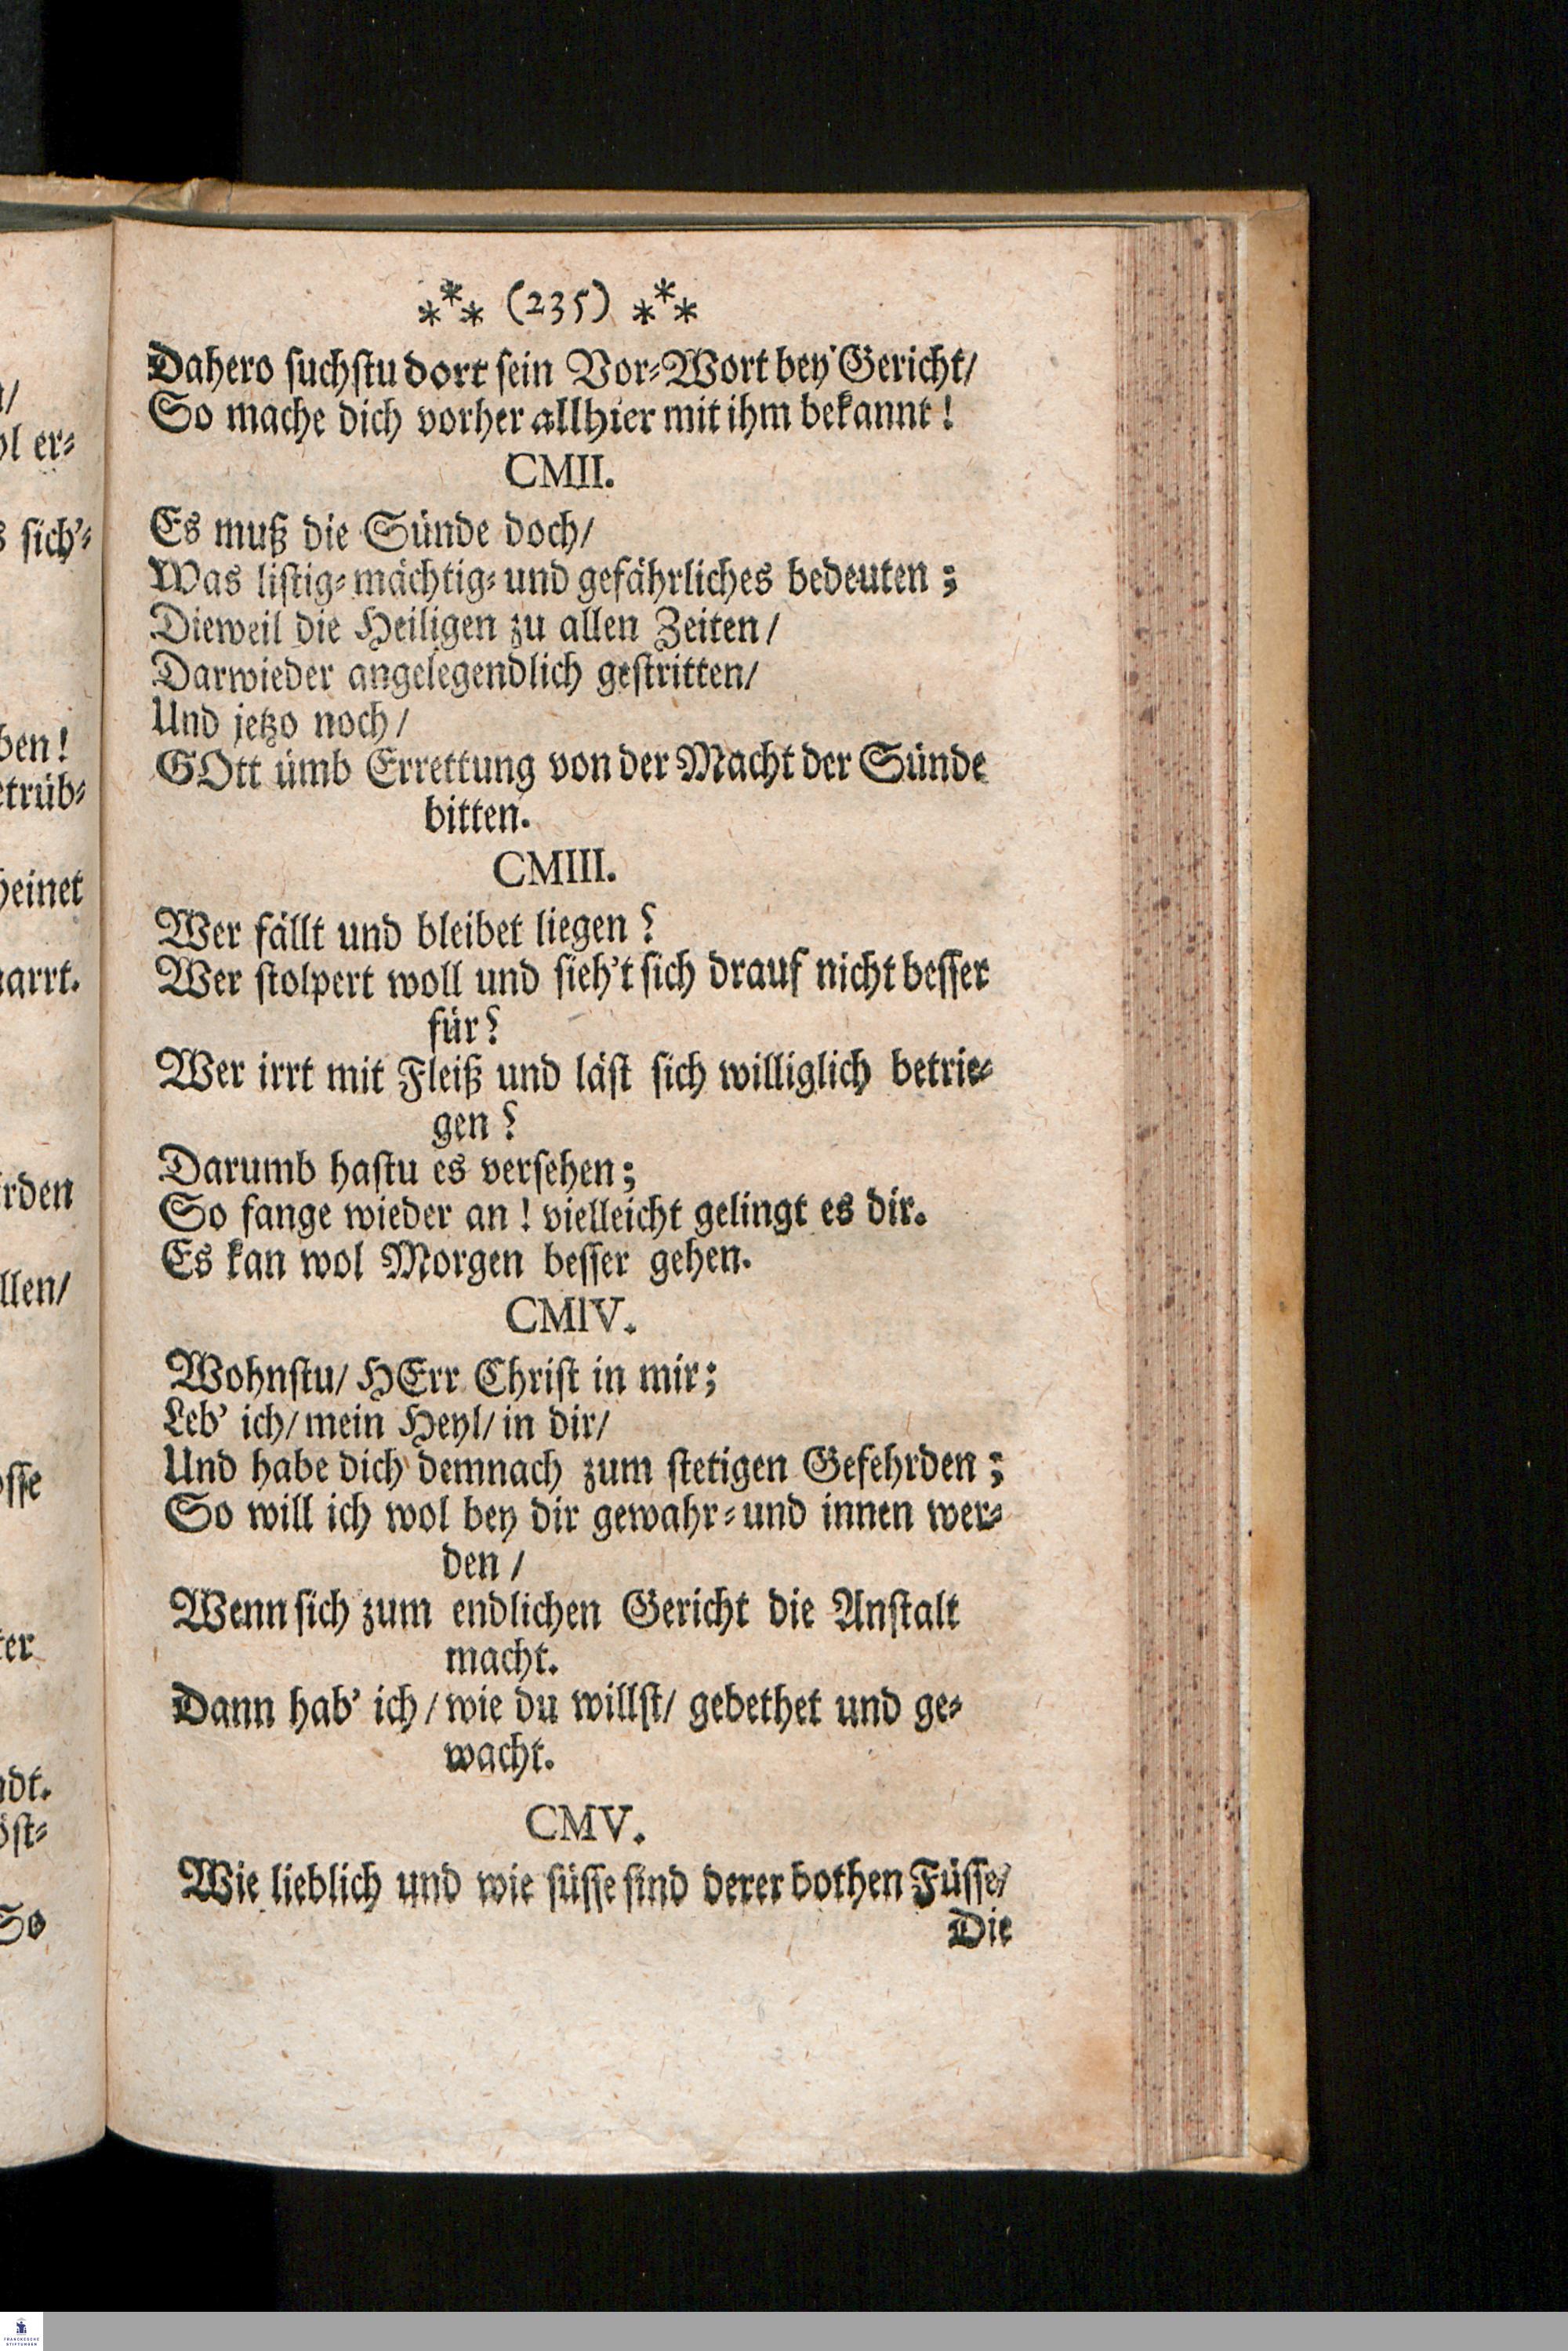 ⁂ (235) ⁂
Dahero suchstu dort sein Vor-Wort bey Gericht/
So mache dich vorher allhier mit ihm bekannt!
CMII.
Es muß die Sünde doch/
Was listig-mächtig- und gefährliches bedeuten;
Dieweil die Heiligen zu allen Zeiten/
Darwieder angelegendlich gestritten/
Und jetzo noch/
GOtt ümb Errettung von der Macht der Sünde
bitten.
CMIII.
Wer fällt und bleibet liegen?
Wer stolpert woll und sieh't sich drauf nicht besser
für?
Wer irrt mit Fleiß und läst sich williglich betrie-
gen?
Darumb hastu es versehen;
So fange wieder an! vielleicht gelingt es dir.
Es kan wol Morgen besser gehen.
CMIV.
Wohnstu/ HErr Christ in mir;
Leb' ich/ mein Heyl/ in dir/
Und habe dich demnach zum stetigen Gefehrden;
So will ich wol bey dir gewahr- und innen wer-
den/
Wenn sich zum endlichen Gericht die Anstalt
macht.
Dann hab' ich/ wie du willst/ gebethet und ge-
wacht.
CMV.
Wie lieblich und wie süsse sind derer bothen Füsse/
Die
/
er-
sich'-
ben!
trüb-
heinet
arrt.
rden
llen/
osse
ter
dt.
öst-
So
FRANCKESCHE
STIFTUNGEN